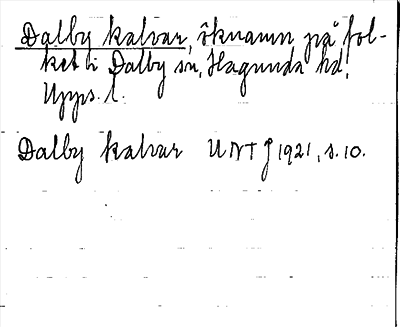 Dalby kalvar, öknamn på fol-
ket i Dalby sn, Hagunda hd,
Upps. l.
Dalby kalvar UNT J 1921, s. 10.